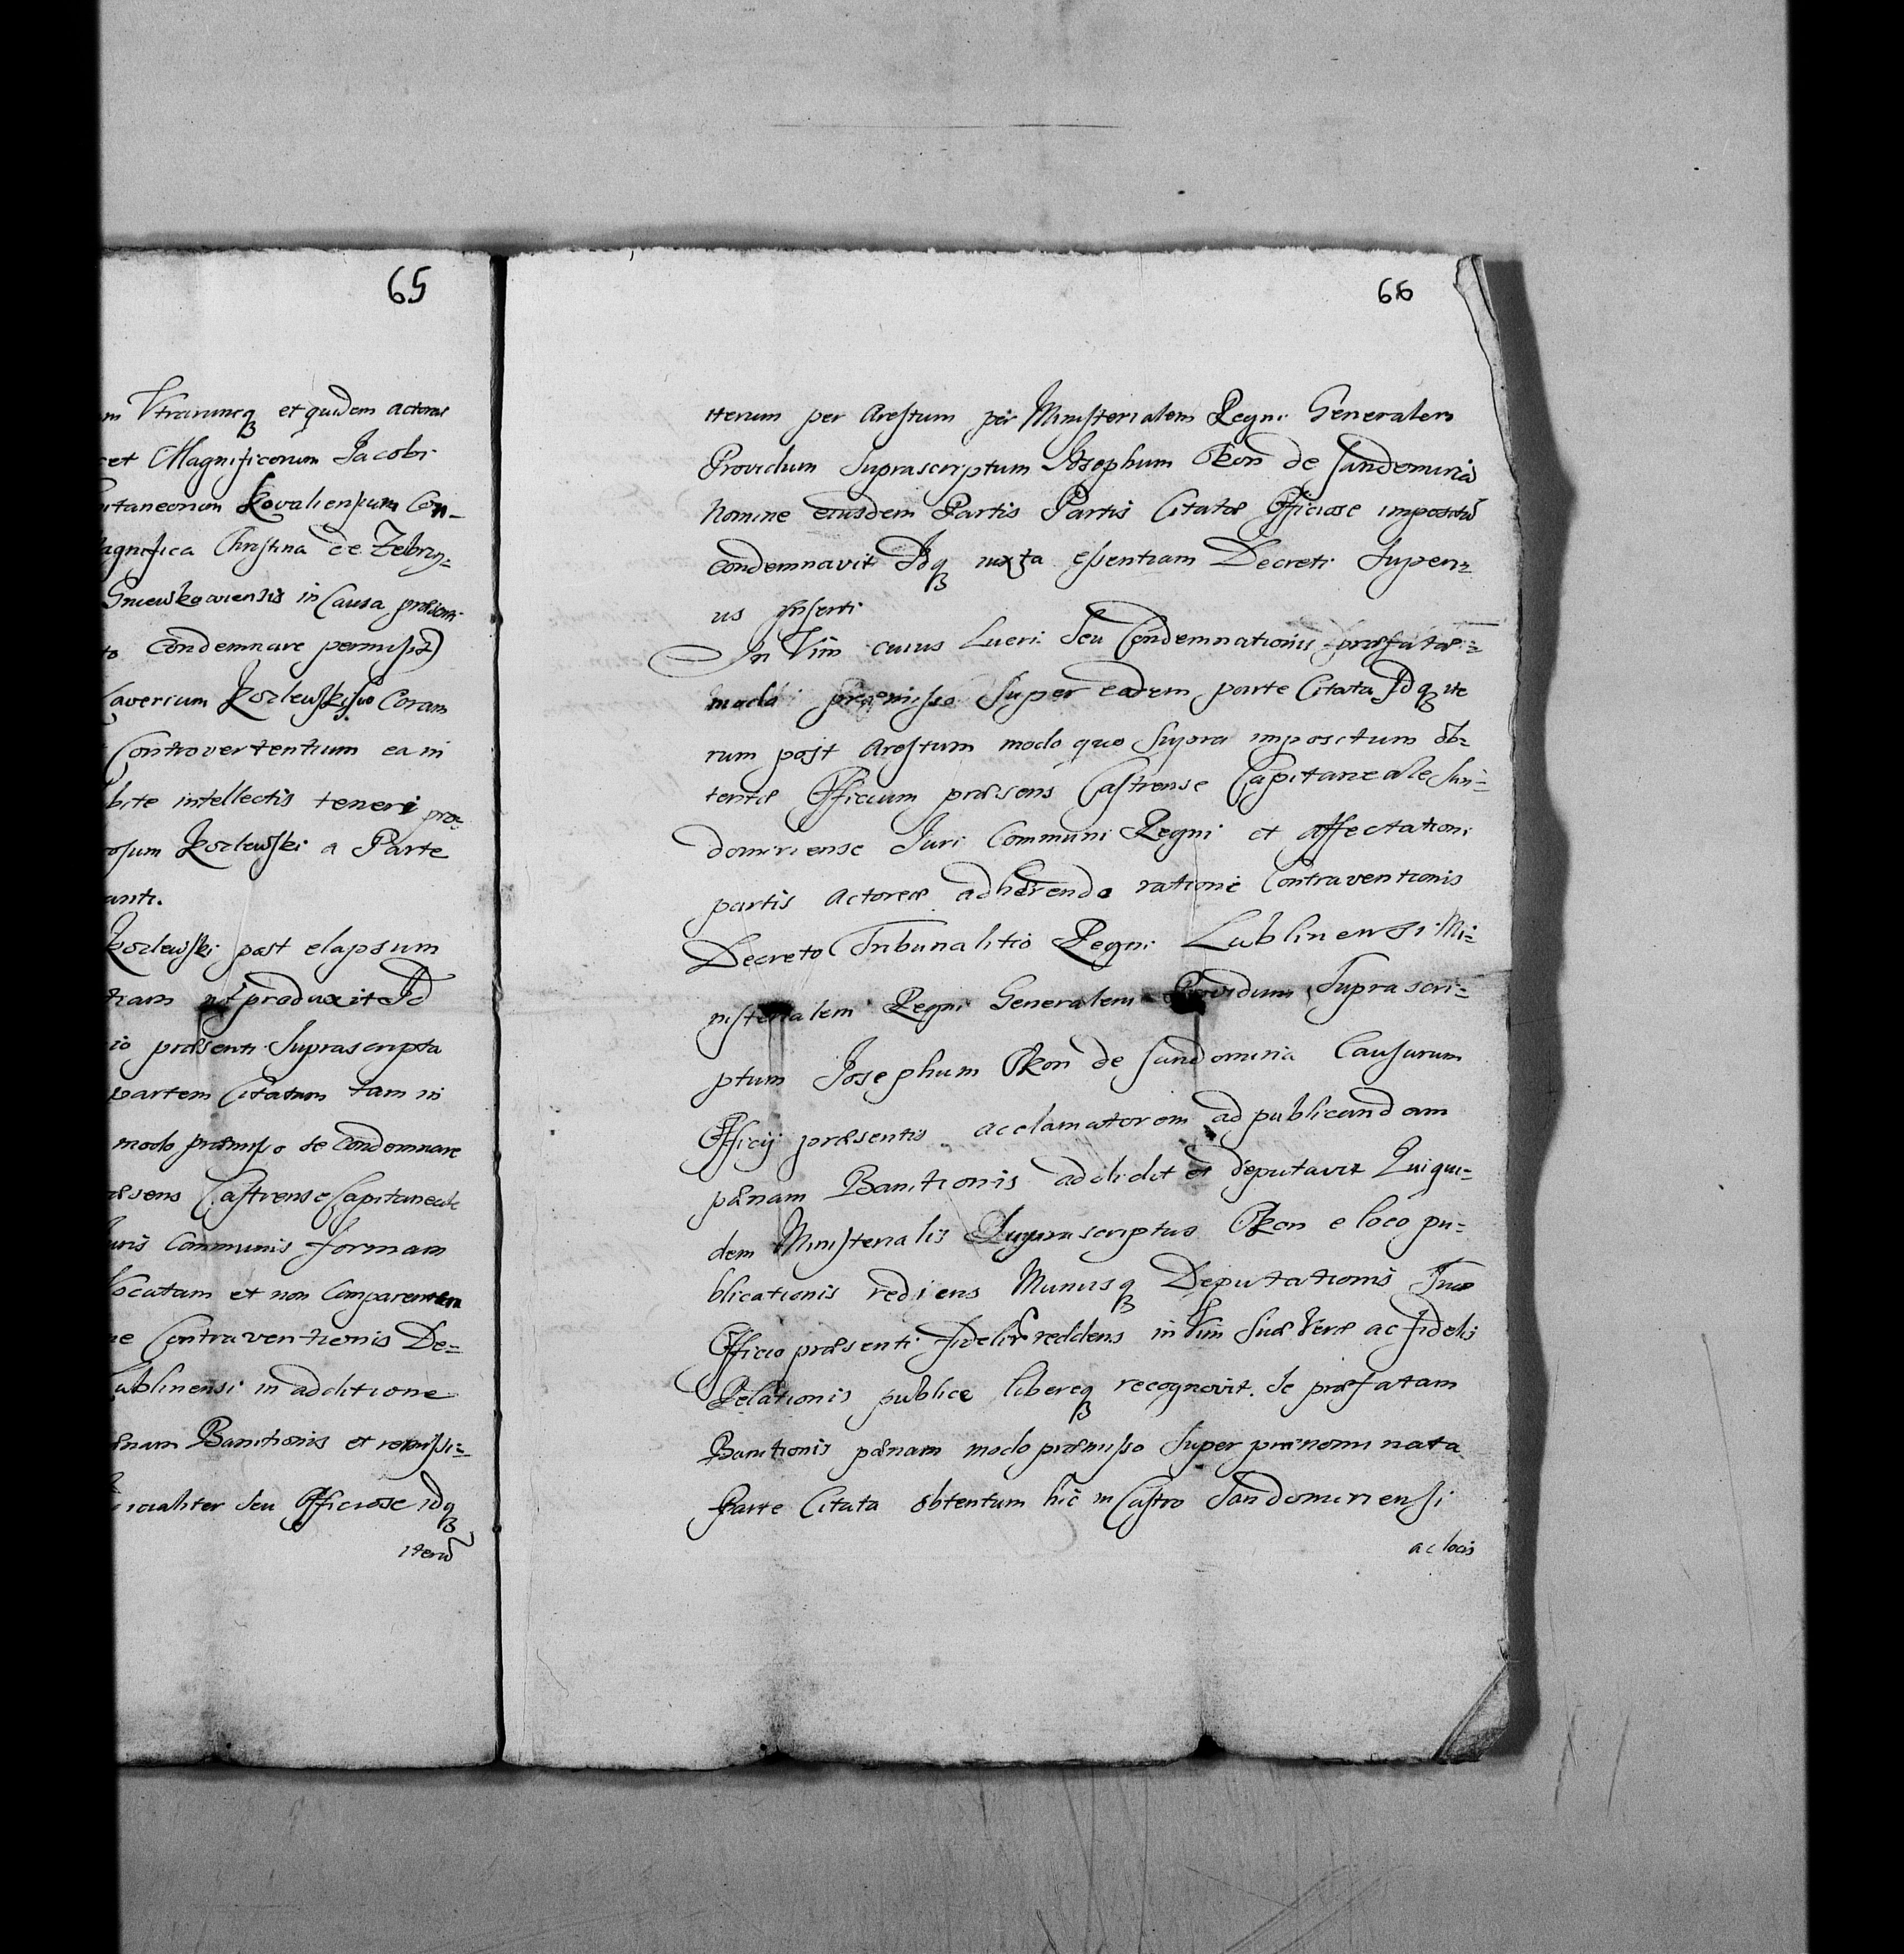 65
m Utrarumq et quidem actorae
cet Magnificorum Jacobi
itaneorum Kovaliensium Con-
agnifica Christina de Zebrzy=
Gniewkoviensis in Causa praesenti
to Condemnare permisit
averium Kozlewski suo Coram
Controvertentium ea in
bite intellectis teneri prae
osum Kozlewski a Parte
anti.
Kozlewski post elapsum
tiam non produxit Id
io praesenti Suprascripta
partem Citatam tam in
modo praemisso se Condemnare
aesens Castrense Capitaneale
uris Communis formam
Vocatam et non Comparentem
ne Contraventionis De=
ublinensi in additione
aenam Banitionis et remissi=
ioualiter seu Officiose idq
iterũ
66
iterum per Arestum per Ministerialem Regni Generalem
Providum Suprascriptum Josephum Okon de Sandomiria
Nomine eiusdem Partis Partis Citatae Officiose impositũ
Condemnavit Idq iuxta essentiam Decreti Superi=
us Inserti
In Vim cuius Lucri Seu Condemnationis praefatae=
modo praemisso Super eadem parte Citata Idq ite
rum post Arestum modo quo Supra impositum ob=
tentae Officium praesens Castrense Capitaneale San=
domiriense Juri Communi Regni et Affectationi
partis Actoreae adhaerendo ratione Contraventionis
Decreto Tribunalitio Regni Lublinensi Mi=
nisterialem Regni Generalem Providum Suprascri=
ptum Josephum Okon de Sandomiria Causarum
Officij praesentis acclamatorem ad publicandam
paenam Banitionis addidit et deputavit Qui qui=
dem Ministerialis Suprascriptus Okon e loco pu=
blicationis rediens Munusq Deputationis Suae
Officio praesenti fideliter reddens in Vim Suae Verae ac fidelis
Relationis publice libereq recognovit. Se praefatam
Banitionis paenam modo praemisso Super praenominata
Parte Citata obtentam hic in Castro Sandomiriensi
ac locis